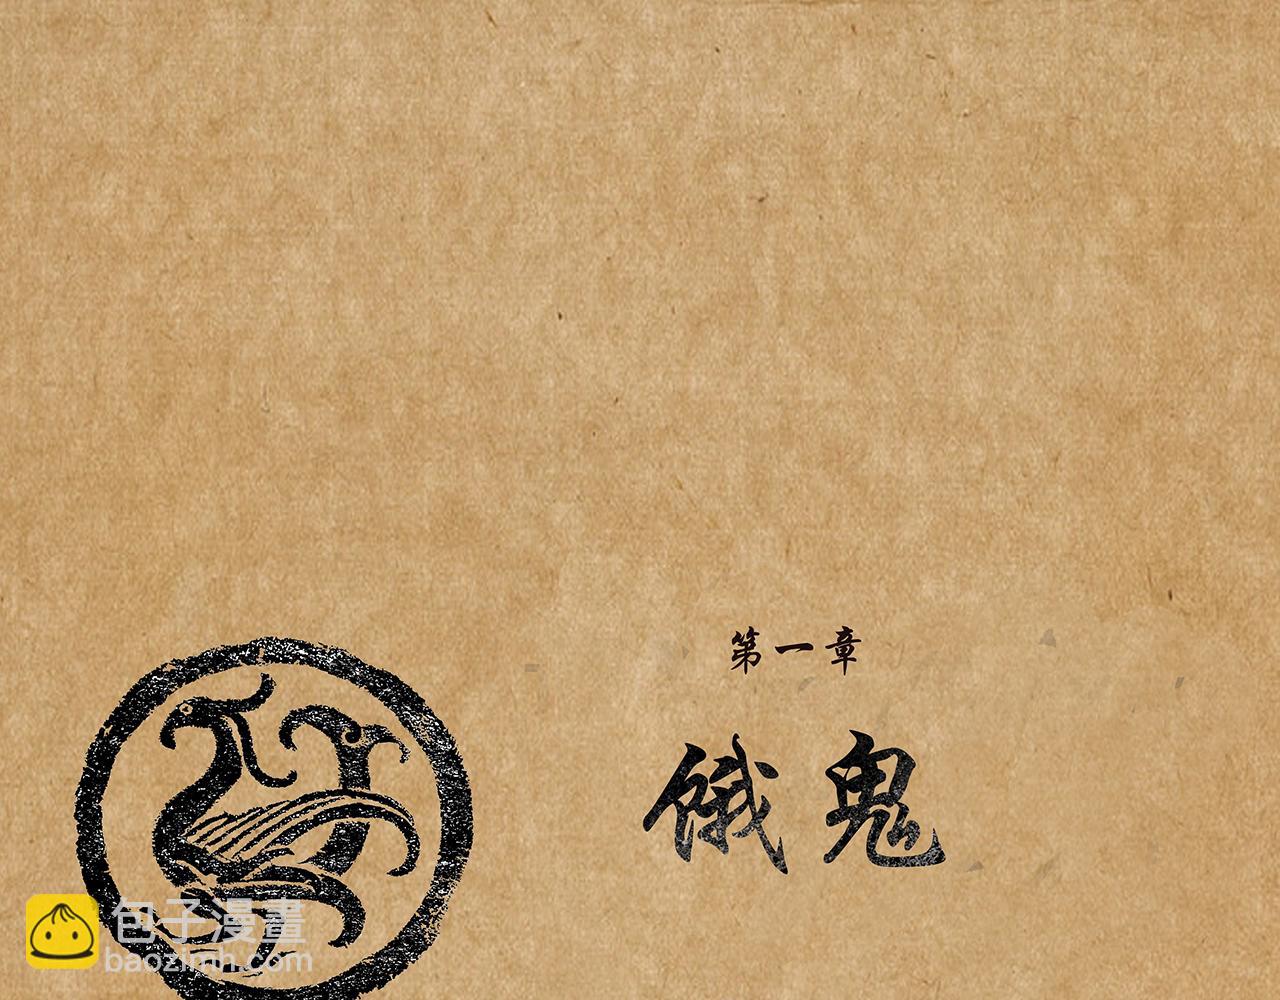 第一章
餓鬼
包子漫畫
baozimh.com